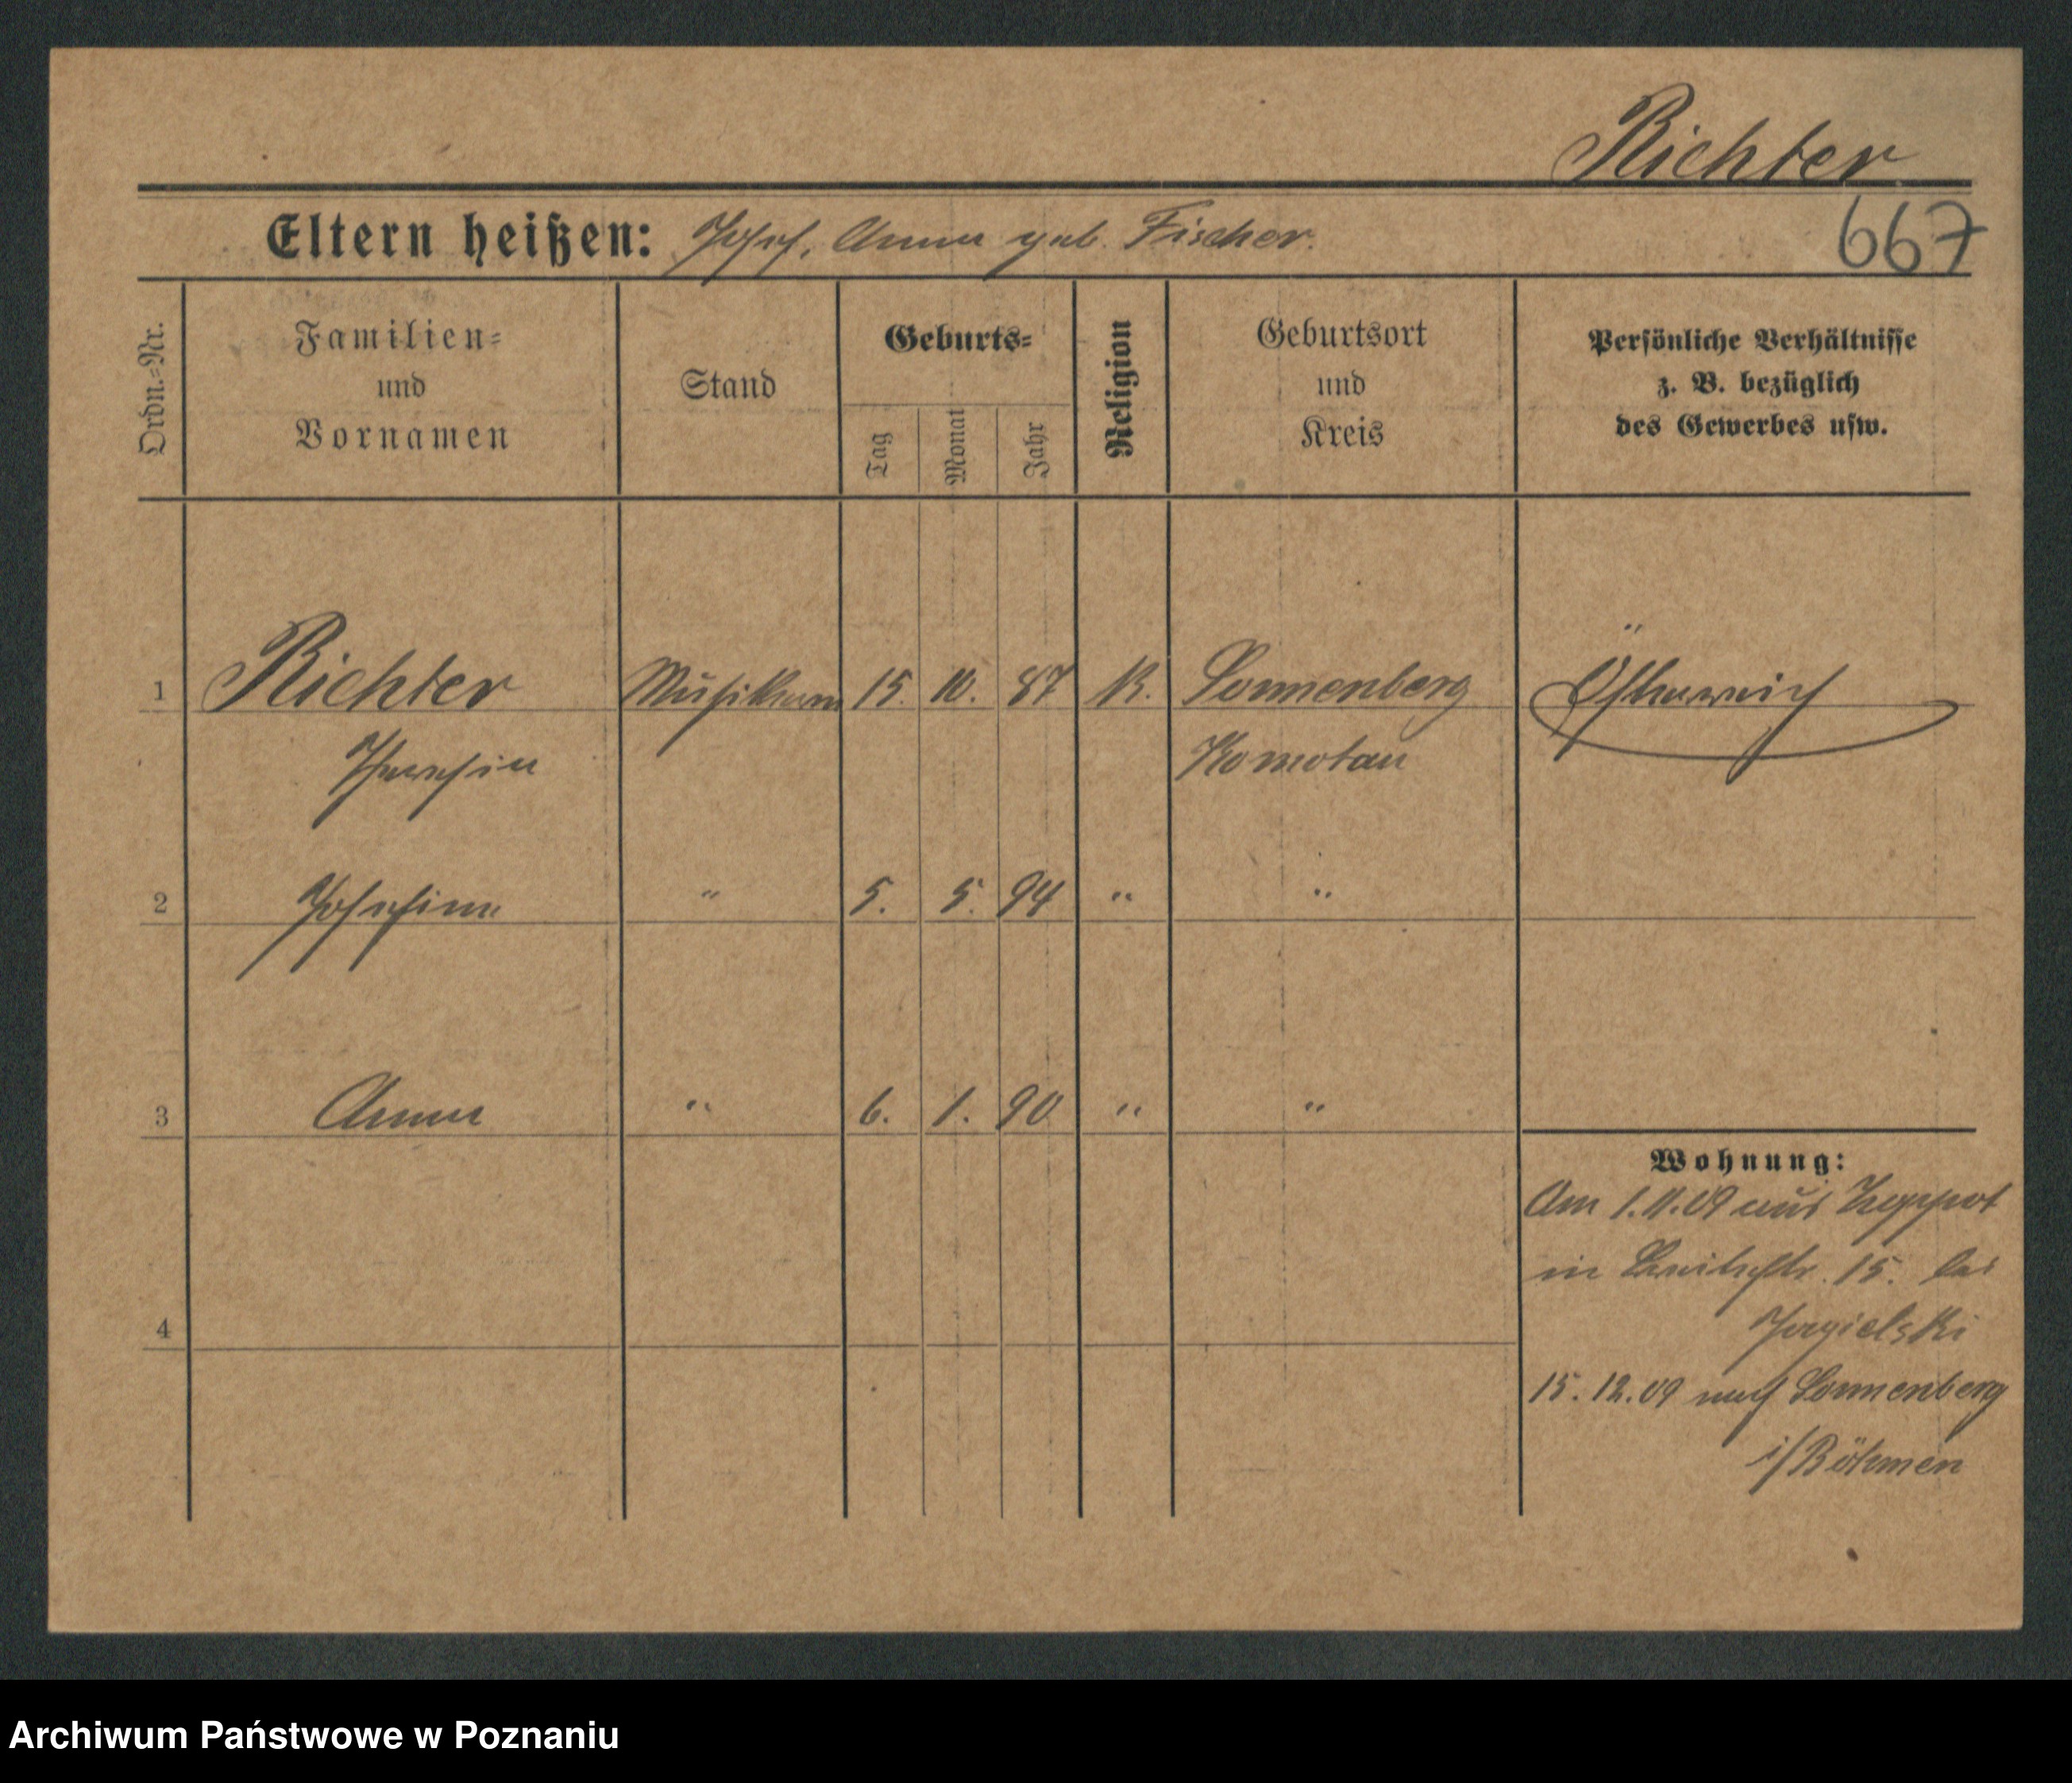 Richter
667
Eltern heißen: Josef, Anna geb. Fischer.
Ordn.-Nr.
Familien-
und
Vornamen
Stand
Geburts-
Tag
Monat
Jahr
Religion
Geburtsort
und
Kreis
Persönliche Verhältnisse
z. B. bezüglich
des Gewerbes usw.
1 Richter Musikern 15. 10. 87 K. Sonnenberg Österreich
Theresia Komotau
2 Josefine " 5. 5. 94 " "
3 Anna " 6. 1. 90 " "
4
Wohnung:
Am 1.11.09 aus Zoppot
in Breitestr. 15. bei
Jagielski
15.12.09 nach Sonnenberg
i/Böhmen
Archiwum Państwowe w Poznaniu